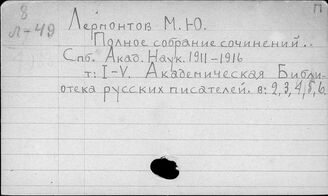 8
Л-49
П
Лермонтов М.Ю.
Полное собрание сочинений..
Спб. Акад. Наук. 1911-1916
т: I-V. Академическая Библи-
отека русских писателей. в: 2,3,4,5,6.